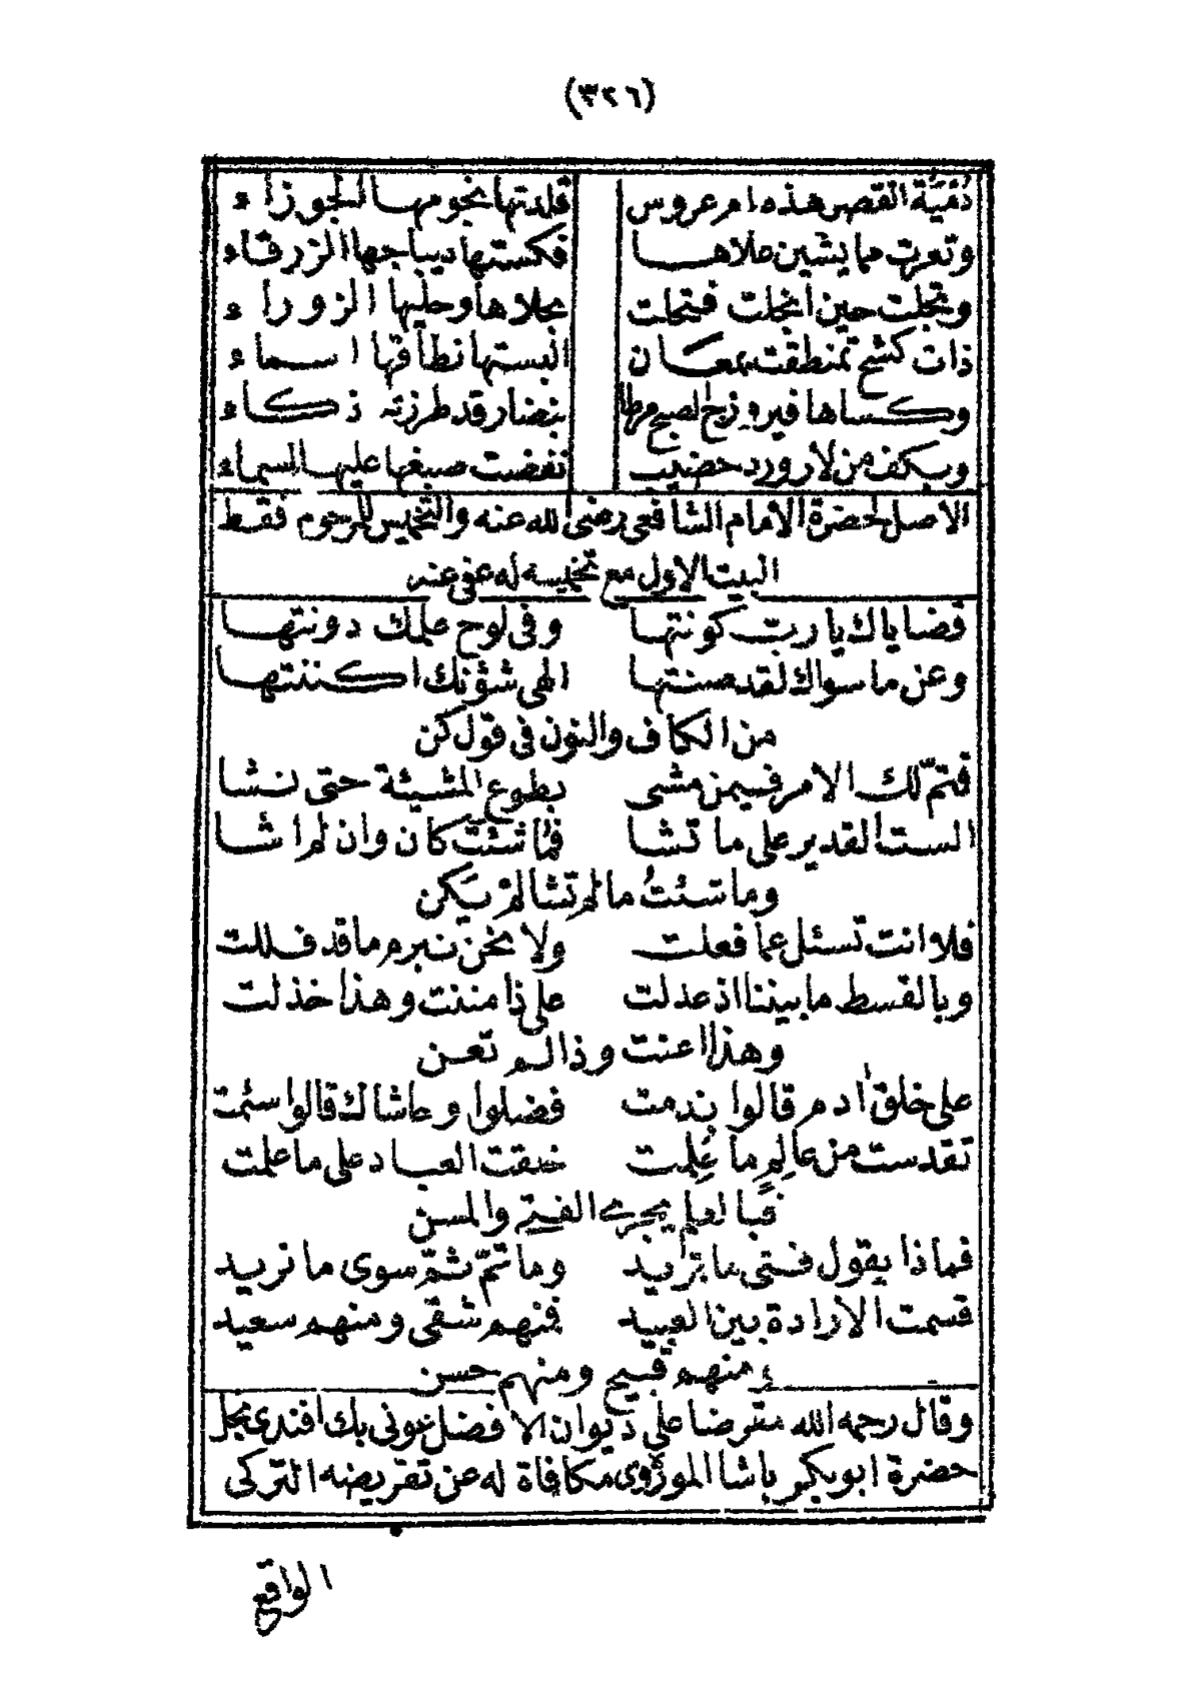 (٣٢٦)
دُمْيَة القصر هذه ام عروس قلدتها نجومها الجوزاء
وتعرت مما يشين حلاها فكستها ديباجها الزرقاء
وتجلت حين انجلت فتحلت بحلاها وحليها الزوراء
ذات كشح تمنطقت بمعان البستها نطاقها اسماء
وكساها فيروزج الصبح مرطا بنضار قد طرزته ذكاء
وبكف من لازورد خضيب نفضت صبغها عليها السماء
الاصل لحضرة الامام الشافعى رضى الله عنه والتخميس للمرحوم فقط
البيت الاول مع تخميسه له عفى عنه
قضاياك يا رب كونتها وفى لوح علمك دونتها
وعن ما سواك لقد صنتها الهى شؤنك اكننتها
من الكاف والنون فى قول كن
فتمّ لك الامر فيمن مشى بطوع المشيئة حتى نشا
الست القدير على ما تشا فما شئت كان وان لم اشا
وما شئتُ ما لم تشا لم يَكن
فلا انت تسئل عما فعلت ولا نحن نبرم ما قد فللت
وبالقسط ما بيننا اذ عدلت على ذا مننت وهذا خذلت
وهذا اعنت وذا لم تعن
على خلق ادم قالوا ندمت فضلوا وحاشاك قالوا سئمت
تقدست من عالِمٍ ما عَلِمت خلقت العباد على ما علمت
فبالعلم يجرى الفتى والمسن
فماذا يقول فتى ما يريد وما تمّ ثمّ سوى ما تريد
قسمت الارادة بين العبيد فمنهم شقى ومنهم سعيد
ومنهم قبيح ومنهم حسن
وقال رحمه الله مقرضا على ديوان الافضل عونى بك افندى نجل
حضرة ابوبكر باشا الموزوى مكافاة له عن تقريضه التركى
الواقع